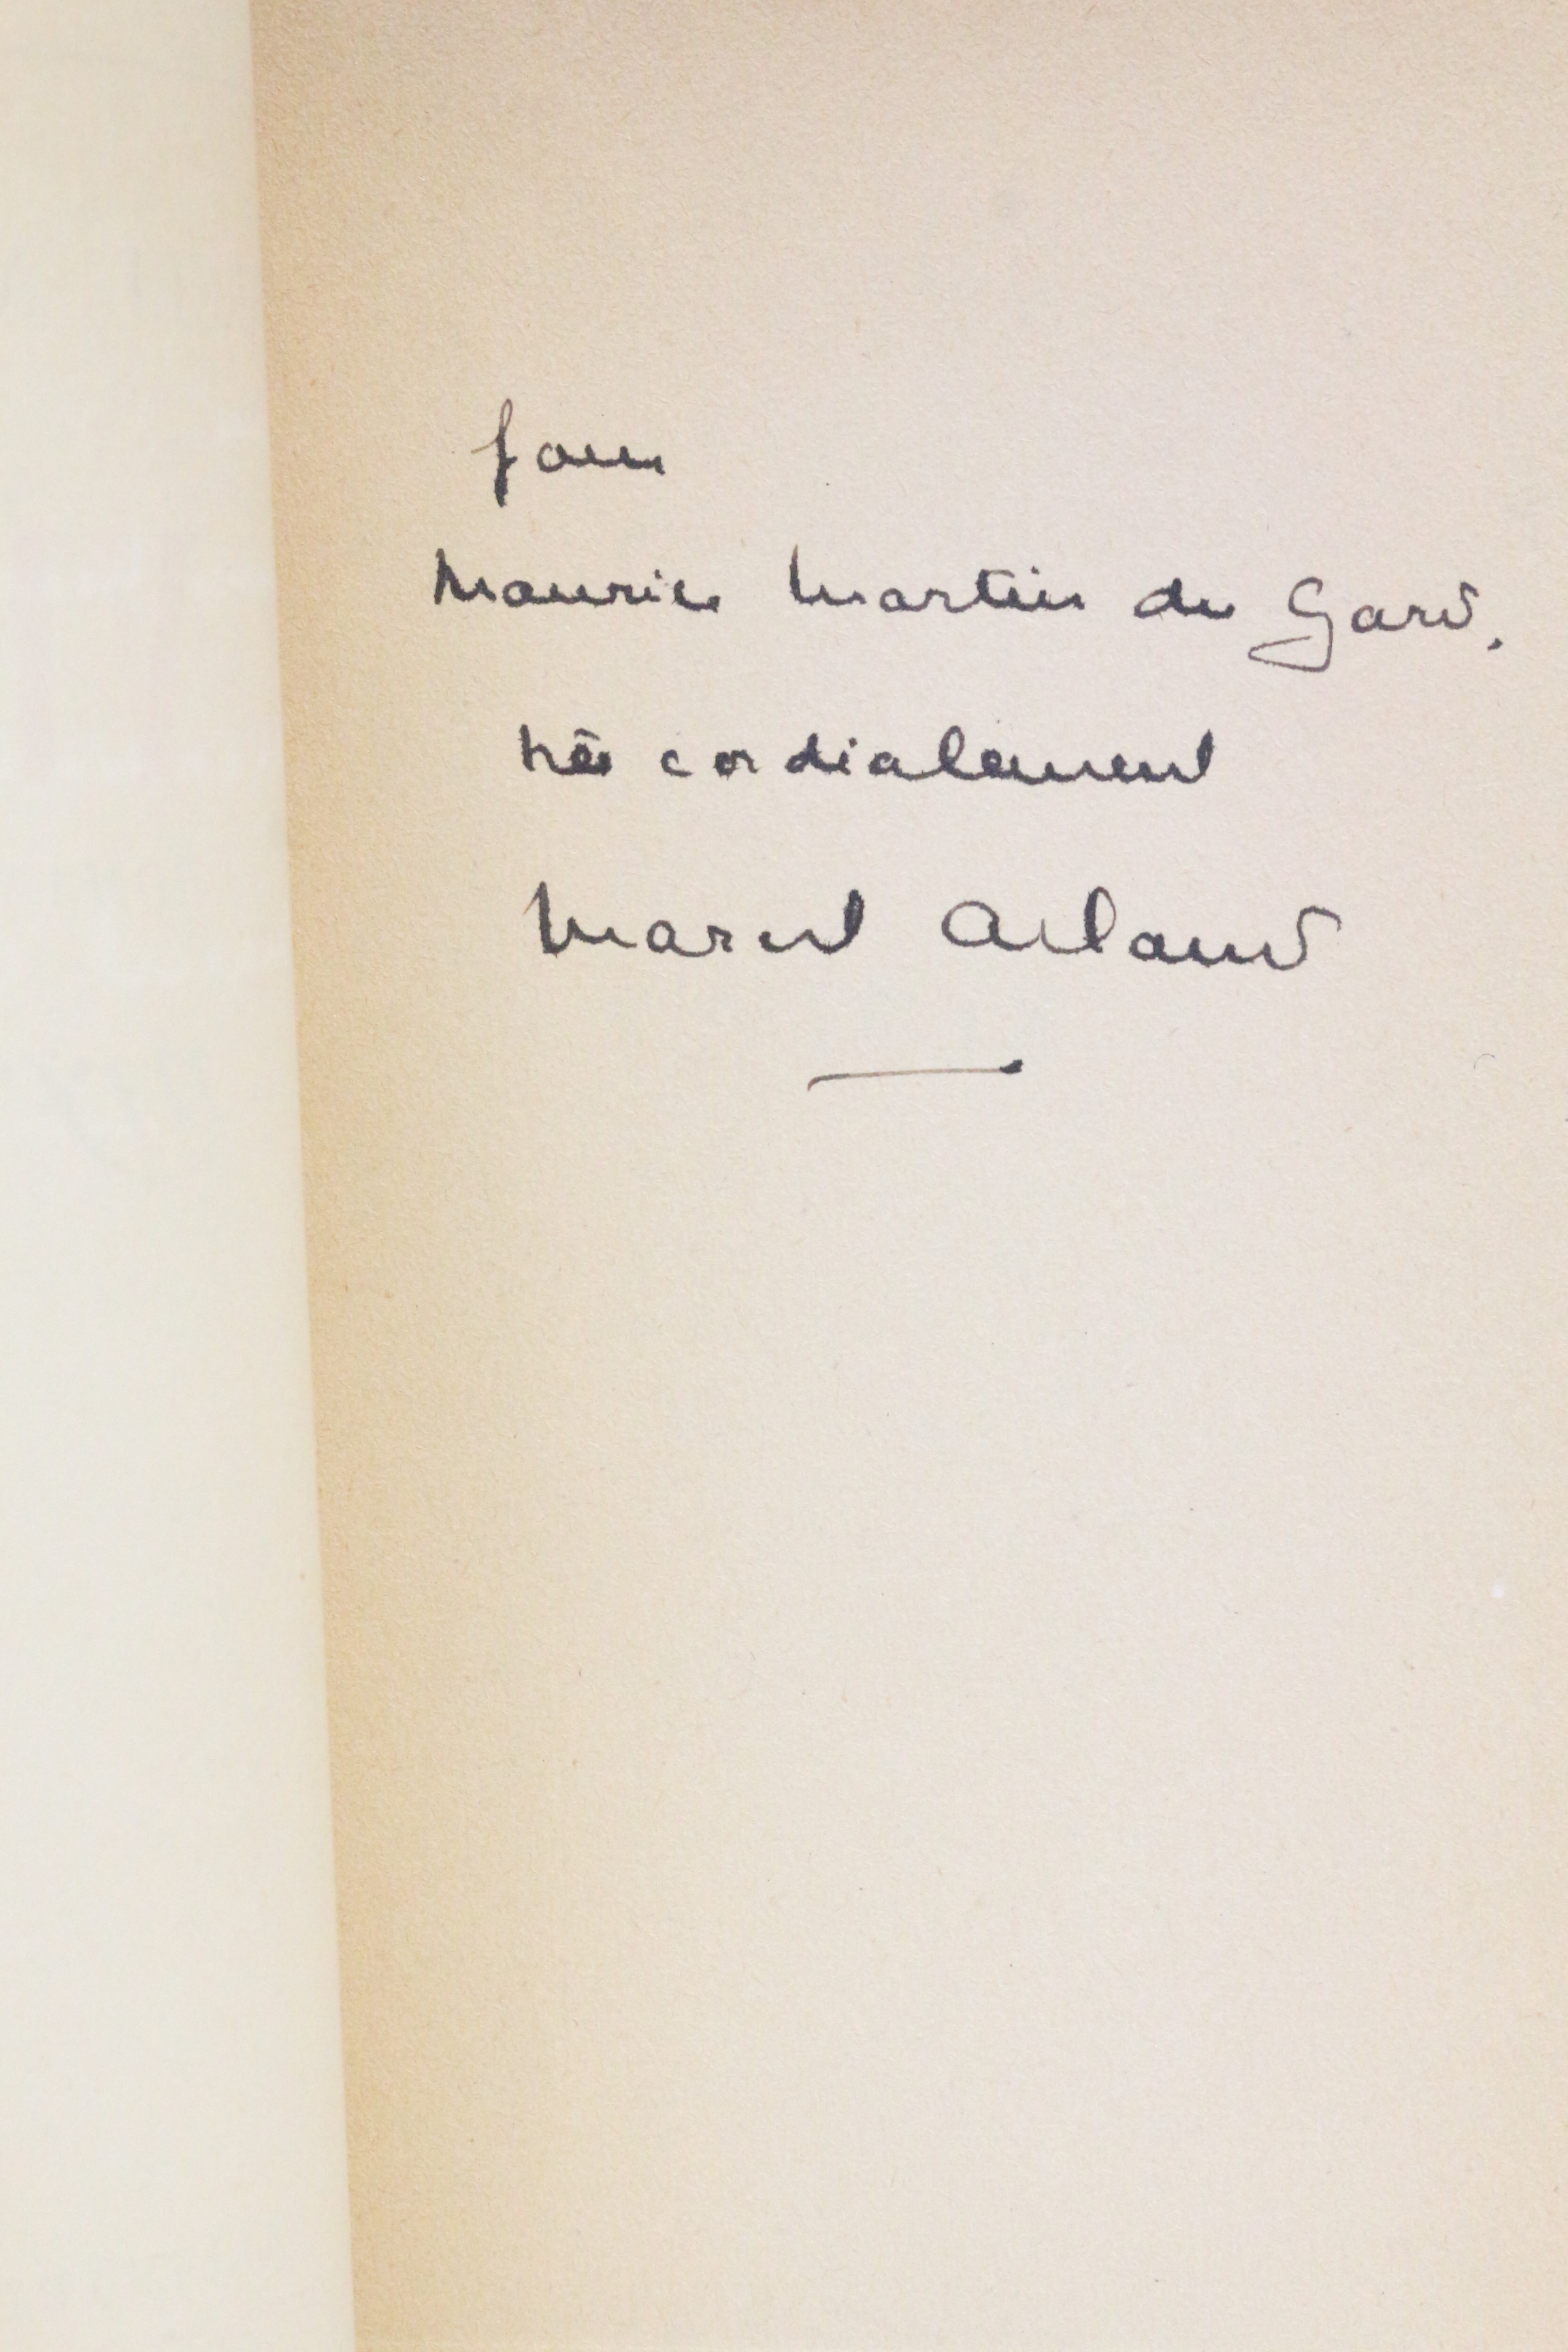 pour
Maurice Martin du Gard.
très cordialement
Marcel Arland